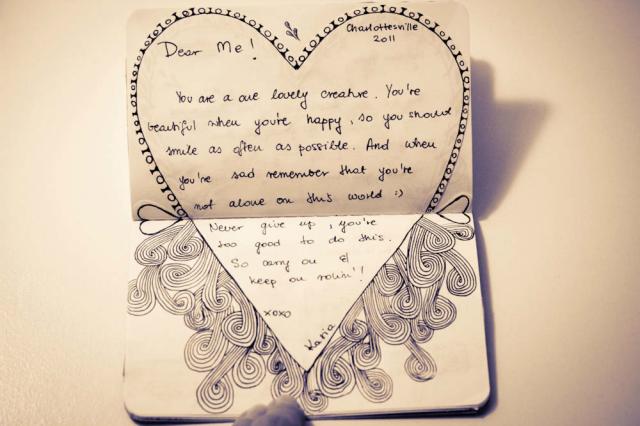 Dear Me!
Charlottesville
2011
You are a one lovely creature. You're
beautiful when you're happy, so you should
smile as often as possible. And when
you're sad remember that you're
not alone on this world :)
Never give up, you're
too good to do this.
So carry on &
keep on rollin'!
xoxo
Katia